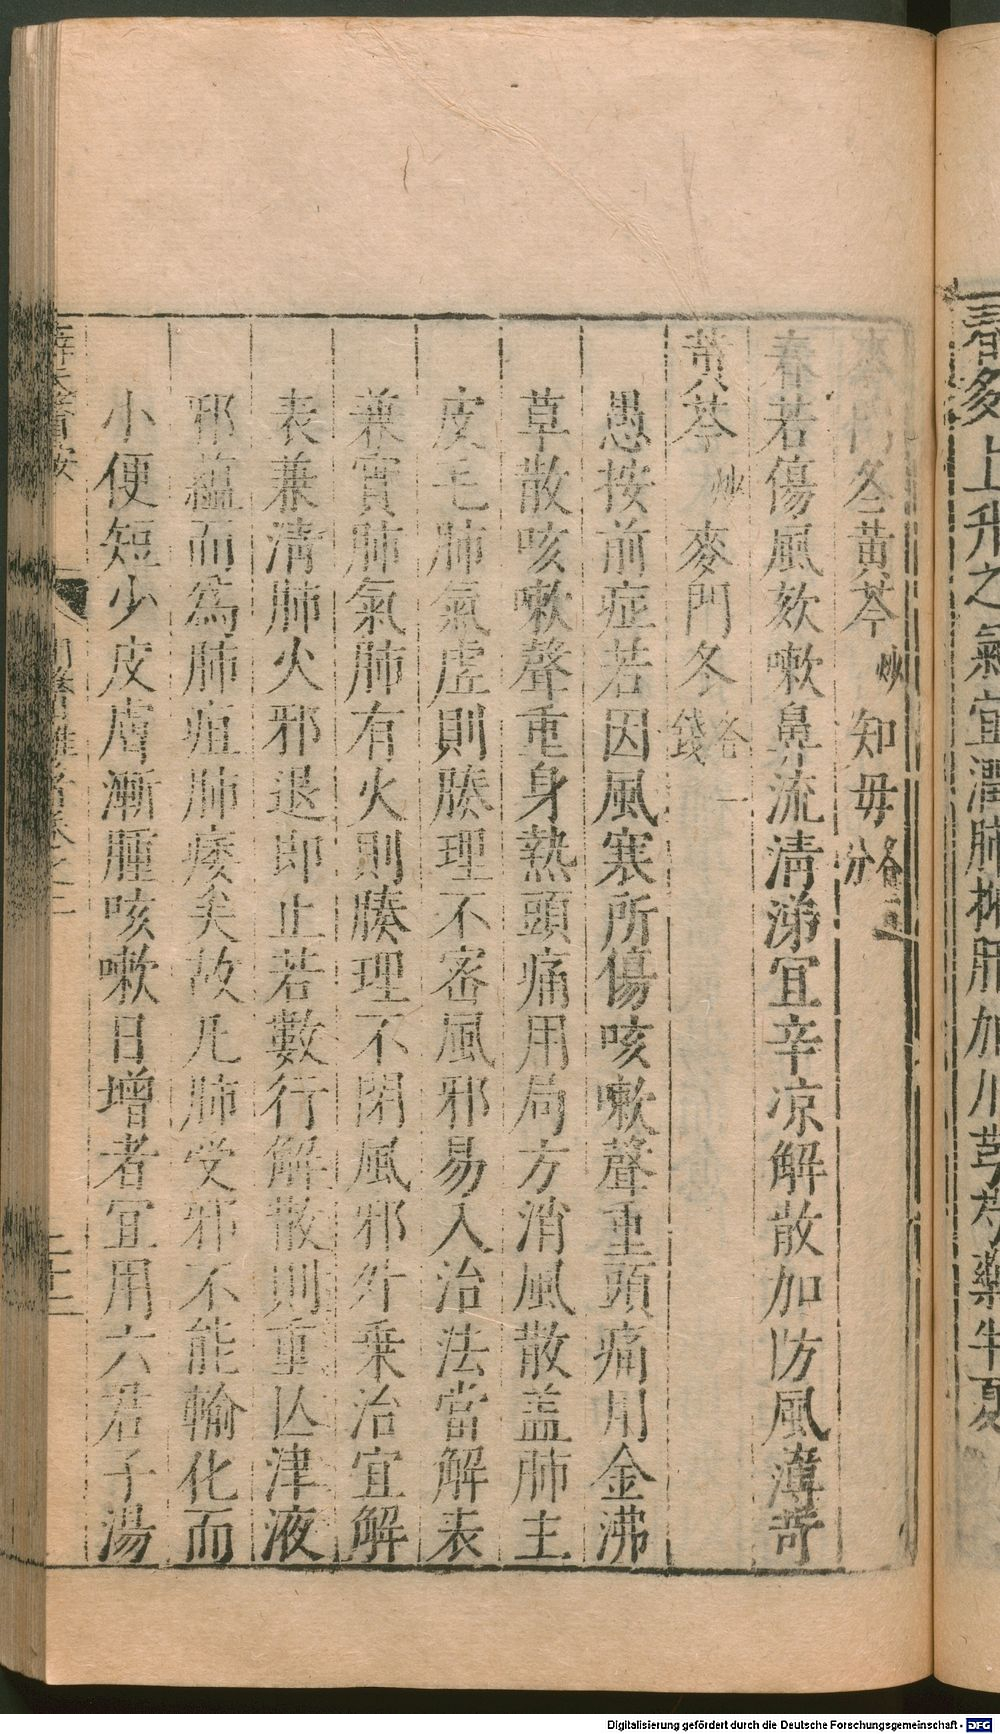 春多上升之氣宜潤肺抑肝加川芎芍藥半夏
麥門冬黃芩炒知毋各二分
春若傷風欬嗽鼻流清涕宜辛凉解散加防風薄苛
黄芩炒麥門冬各一錢
愚按前症若因風寒所傷咳嗽聲重頭痛用金沸
草散咳嗽聲重身熱頭痛用局方消風散盖肺主
皮毛肺氣虛則腠理不密風邪易入治法當解表
兼實肺氣肺有火則腠理不閉風邪外乗治宜解
表兼清肺火邪退即止若數行解散則重亾津液
邪蘊而為肺疽肺痿矣故凡肺受邪不能輸化而
小便短少皮膚漸腫咳嗽日增者宜用六君子湯
薛氏醫按 明醫雜著卷之二 二十二
Digitalisierung gefördert durch die Deutsche Forschungsgemeinschaft - DFG